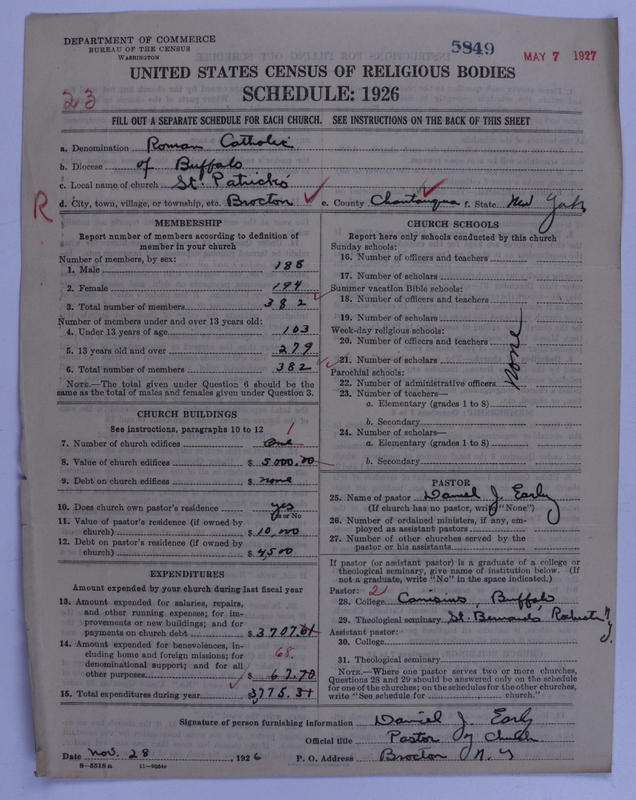 DEPARTMENT OF COMMERCE
BUREAU OF THE CENSUS
WASHINGTON
5849
MAY 7 1927
UNITED STATES CENSUS OF RELIGIOUS BODIES
SCHEDULE: 1926
23
FILL OUT A SEPARATE SCHEDULE FOR EACH CHURCH. SEE INSTRUCTIONS ON THE BACK OF THIS SHEET
a. Denomination Roman Catholic
b. Diocese of Buffalo
c. Local name of church St. Patrick's
R d. City, town, village, or township, etc. Brocton e. County Chautauqua f. State New York
MEMBERSHIP
Report number of members according to definition of
member in your church
Number of members, by sex:
1. Male 188
2. Female 194
3. Total number of members 382
Number of members under and over 13 years old:
4. Under 13 years of age 103
5. 13 years old and over 279
6. Total number of members 382
NOTE.—The total given under Question 6 should be the
same as the total of males and females given under Question 3.
CHURCH BUILDINGS
See instructions, paragraphs 10 to 12
7. Number of church edifices one 1
8. Value of church edifices $ 5000.00
9. Debt on church edifices $ none
10. Does church own pastor's residence yes
Yes or No
11. Value of pastor's residence (if owned by
church) $ 10,000
12. Debt on pastor's residence (if owned by
church) $ 4,500
EXPENDITURES
Amount expended by your church during last fiscal year
13. Amount expended for salaries, repairs,
and other running expenses; for im-
provements or new buildings; and for
payments on church debt $ 3707.61
14. Amount expended for benevolences, in-
cluding home and foreign missions; for
denominational support; and for all
other purposes 68. $ 67.70
15. Total expenditures during year $ 3775.31
CHURCH SCHOOLS
Report here only schools conducted by this church
Sunday schools:
16. Number of officers and teachers
17. Number of scholars
Summer vacation Bible schools:
18. Number of officers and teachers
19. Number of scholars
Week-day religious schools:
20. Number of officers and teachers
21. Number of scholars
none
Parochial schools:
22. Number of administrative officers
23. Number of teachers—
a. Elementary (grades 1 to 8)
b. Secondary
24. Number of scholars—
a. Elementary (grades 1 to 8)
b. Secondary
PASTOR
25. Name of pastor Daniel J. Early
(If church has no pastor, write "None")
26. Number of ordained ministers, if any, em-
ployed as assistant pastors
27. Number of other churches served by the
pastor or his assistants
If pastor (or assistant pastor) is a graduate of a college or
theological seminary, give name of institution below. (If
not a graduate, write "No" in the space indicated.)
Pastor: 2
28. College Canisius, Buffalo
29. Theological seminary St. Bernard's Rochester N.Y.
Assistant pastor:
30. College
31. Theological seminary
NOTE.—Where one pastor serves two or more churches,
Questions 28 and 29 should be answered only on the schedule
for one of the churches; on the schedules for the other churches,
write "See schedule for church."
Signature of person furnishing information Daniel J. Early
Official title Pastor of Church
Date Nov. 28, 1926 P. O. Address Brocton N.Y
8—5518a 11—9204a